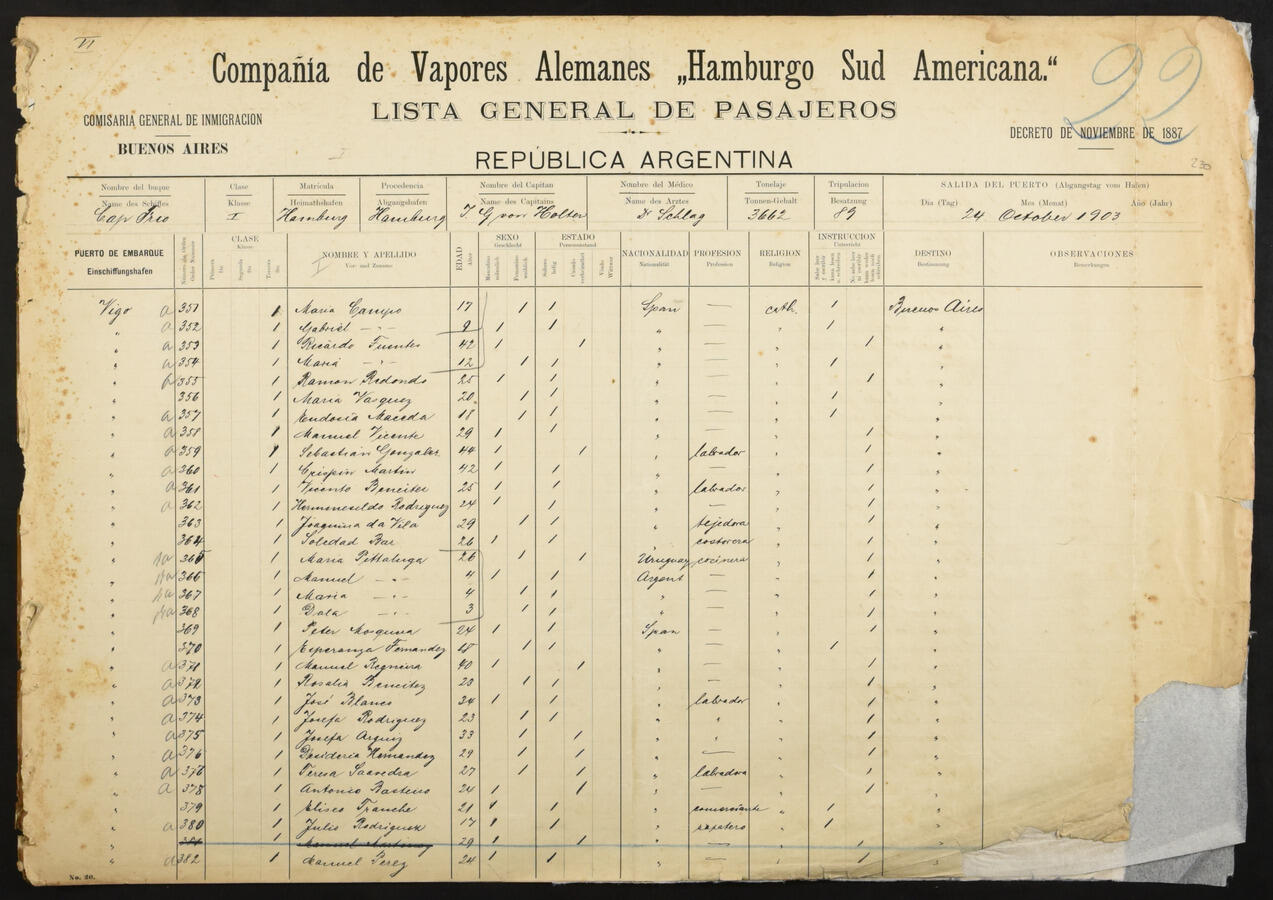 VI
Compañía de Vapores Alemanes „Hamburgo Sud Americana.“
22
LISTA GENERAL DE PASAJEROS
COMISARIA GENERAL DE INMIGRACION
DECRETO DE NOVIEMBRE DE 1887
BUENOS AIRES
REPÚBLICA ARGENTINA
230
Nombre del buque Clase Matrícula Procedencia Nombre del Capitan Nombre del Médico Tonelaje Tripulacion SALIDA DEL PUERTO (Abgangstag vom Hafen)
Name des Schiffes Klasse Heimathshafen Abgangshafen Name des Capitains Name des Arztes Tonnen-Gehalt Besatzung Dia (Tag) Mes (Monat) Año (Jahr)
Cap Frio I Hamburg Hamburg J. G. von Holten Dr Schlag 3662 89 24 October 1903
PUERTO DE EMBARQUE CLASE NOMBRE Y APELLIDO EDAD SEXO ESTADO NACIONALIDAD PROFESION RELIGION INSTRUCCION DESTINO OBSERVACIONES
Einschiffungshafen Klasse Vor- und Zuname Alter Geschlecht Personenstand Nationalität Profession Religion Unterricht Bestimmung Bemerkungen
Vigo a 351 1 Maria Campo 17 1 1 Span — cath. 1 Buenos Aires
" a 352 1 Gabriel — " — 9 1 1 " — " 1 "
" a 353 1 Ricardo Fuentes 42 1 1 " — " 1 "
" a 354 1 Maria — " — 12 1 1 " — " 1 "
" 355 1 Ramon Redondo 25 1 1 " — " 1 "
" 356 1 Maria Vasquez 20 1 1 " — " 1 "
" a 357 1 Eudosia Maceda 18 1 1 " — " 1 "
" a 358 1 Manuel Vicente 29 1 1 " — " 1 "
" a 359 1 Sebastian Gonzalez 44 1 1 " labrador " 1 "
" a 360 1 Crispin Martin 42 1 1 " — " 1 "
" a 361 1 Vicente Beneitez 25 1 1 " labrador " 1 "
" a 362 1 Hermenesildo Rodriguez 24 1 1 " — " 1 "
" 363 1 Joaquina da Vila 29 1 1 " tejedora " 1 "
" 364 1 Soledad Bar 26 1 1 " costorera " 1 "
" 365 1 Maria Pittaluga 26 1 1 Uruguay cocinera " 1 "
" 366 1 Manuel — " — 4 1 1 Argent — " 1 "
" 367 1 Maria — " — 4 1 1 " — " 1 "
" 368 1 — " — 3 1 1 " — " 1 "
" 369 1 Peter Mosquera 24 1 1 Span — " 1 "
" 370 1 Esperanza Fernandez 18 1 1 " — " 1 "
" a 371 1 Manuel Regueira 40 1 1 " — " 1 "
" a 372 1 Rosalia Beneitez 23 1 1 " — " 1 "
" a 373 1 José Blanco 34 1 1 " labrador " 1 "
" a 374 1 Josefa Rodriguez 23 1 1 " " " 1 "
" a 375 1 Josefa 33 1 1 " " " 1 "
" a 376 1 Desideria Hernandez 29 1 1 " — " 1 "
" a 377 1 Teresa Saavedra 27 1 1 " labradora " 1 "
" a 378 1 Antonio 24 1 1 " — " 1 "
" 379 1 Eliseo Tranche 21 1 1 " comerciante " 1 "
" a 380 1 Julio Rodriguez 17 1 1 " zapatero " 1 "
" 381 1 Manuel Martinez 29 1 1 " — " 1 "
" a 382 1 Manuel Perez 24 1 1 " — " 1 "
No. 20.